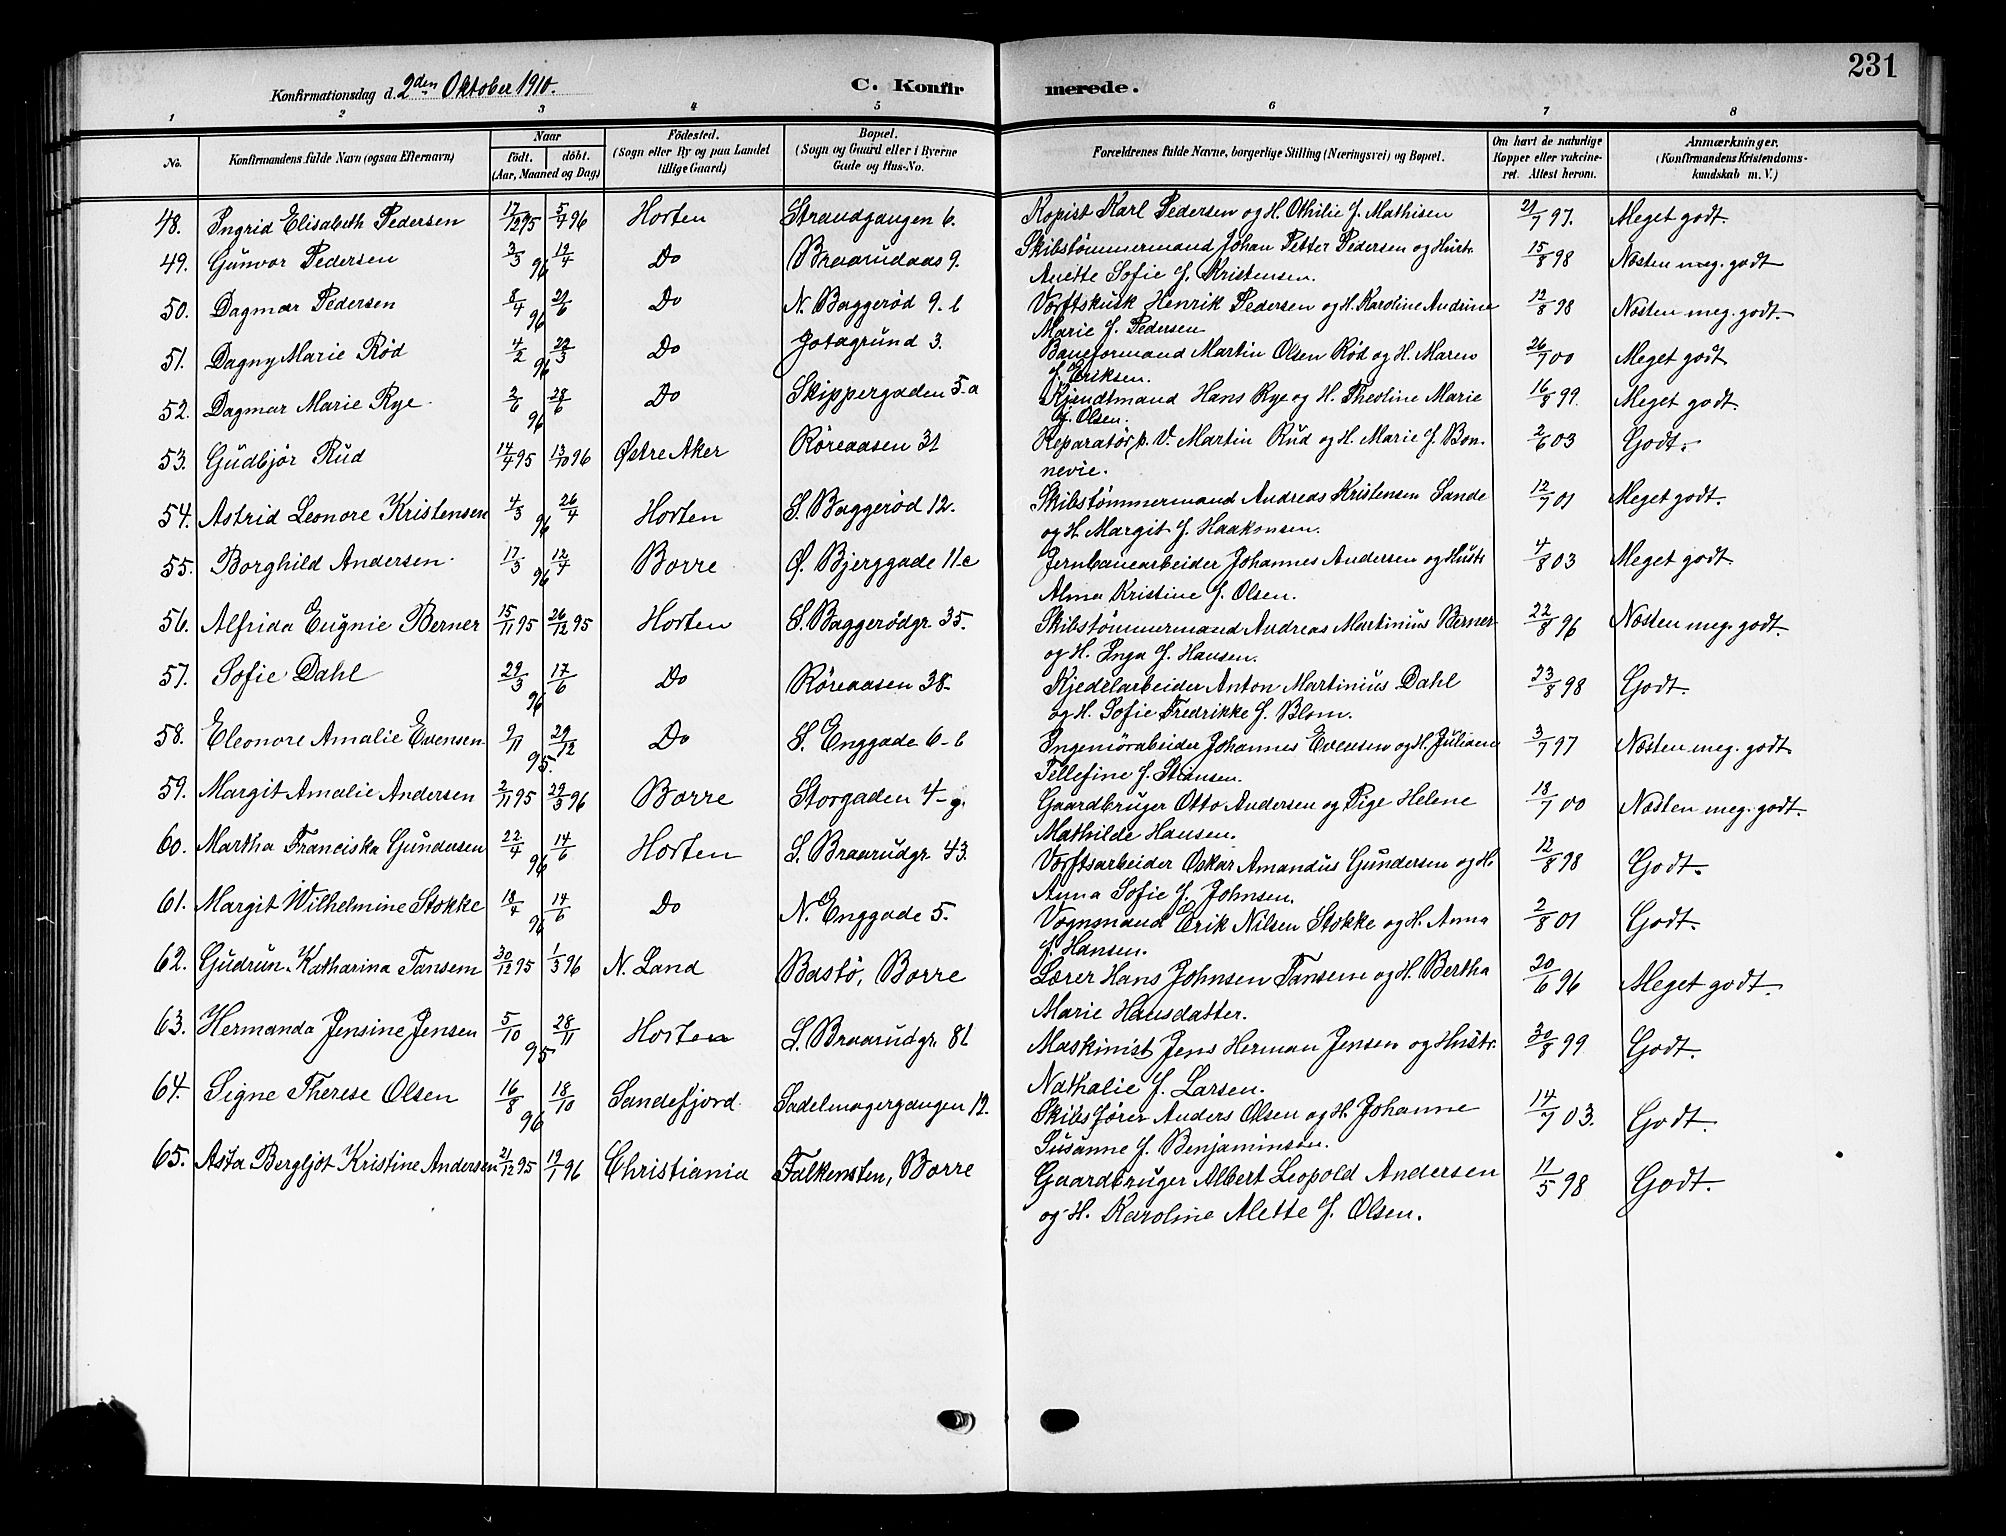 231
Konfirmationsdag d. 2den Oktober 1910.
C. Konfirmerede.
1 2 3 4 5 6 7 8
No. Konfirmandens fulde Navn (ogsaa Efternavn) Naar født. døbt. (Aar, Maaned og Dag) Födested. (Sogn eller By og paa Landet tillige Gaard) Bopæl. (Sogn og Gaard eller i Byerne Gade og Hus-No. Forældrenes fulde Navne, borgerlige Stilling (Næringsvei) og Bopæl. Om havt de naturlige Kopper eller vakcineret. Attest herom. Anmærkninger. (Konfirmandens Kristendomskundskab m. V.)
48. Ingrid Elisabeth Pedersen 17/12 95 5/4 96 Horten Strandgangen 6. Kopist Karl Pedersen og H. Othilie f. Mathisen 21/7 97. Meget godt.
49. Gunvor Pedersen 3/3 96 12/4 Do Braarudaas 9. Skibstømmermand Johan Petter Pedersen og Hustr.
Anette Sofie f. Kristensen. 15/8 98 Næsten meg. godt
50. Dagmar Pedersen 8/4 96 21/6 Do N. Baggerød 9. b Værftskusk Henrik Pedersen og H. Karoline Andrine
Marie f. Pedersen 12/8 98 Næsten meg. godt.
51. Dagny Marie Rød 4/2 96 22/3 Do Jotagrund 3. Baneformand Martin Olsen Rød og H. Maren
f. Eriksen. 26/7 00 Meget godt
52. Dagmar Marie Rye. 2/6 96 28/6 Do Skippergaden 5.a Kjendtmand Hans Rye og H. Theoline Marie
f. Olsen. 16/8 99. Meget godt.
53. Gudbjør Rud 14/4 95 13/10 96 Østre Aker Røreaasen 31 Reparatør p. V. Martin Rud og H. Marie f. Bon-
nevie. 2/6 03 Godt.
54. Astrid Leonore Kristensen 4/3 96 26/4 Horten S. Baggerød 12. Skibstømmermand Andreas Kristensen Sande
og H. Margit f. Haakonsen. 12/7 01 Meget godt.
55. Borghild Andersen. 17/3 96 12/7 Borre Ø. Bjerggade 11.c Jernbanearbeider Johannes Andersen og Hustr.
Alma Kristine f. Olsen. 4/8 03 Meget godt.
56. Alfrida Eugnie Berner 15/11 95 26/12 95 Horten S. Baggerødgr. 35. Skibstømmermand Andreas Martinius Berner
og H. Inga f. Hansen. 22/8 96 Næsten meg. godt.
57. Sofie Dahl 29/3 96 17/6 Do Røreaasen 38. Kjedelarbeider Anton Martinius Dahl
og H. Sofie Fredrikke f. Blom. 23/8 98 Godt.
58. Eleonore Amalie Evensen 9/11 95. 29/12 Do S. Enggade 6-b Ingeniörarbeider Johannes Evensen og H. Juliane
Tellefine f. Stiansen. 3/7 97 Næsten meg. godt
59. Margit Amalie Andersen 2/11 95 29/3 96 Borre Storgaden 4-g. Gaardbruger Otto Andersen og Pige Helene
Mathilde Hansen. 18/7 00 Næsten meg. godt.
60. Martha Franciska Gundersen 22/4 96 14/6 Horten S. Braarudgr. 43. Værftsarbeider Oskar Amandus Gundersen og H.
Anna Sofie f. Johnsen. 12/8 98 Godt.
61. Margit Wilhelmine Stokke 18/4 96 14/6 Do N. Enggade 5. Vognmand Erik Nilsen Stokke og H. Anna
f. Hansen. 2/8 01 Godt.
62. Gudrun Katharina Tansem 30/12 95 1/3 96 N. Land Bastö, Borre Lærer Hans Johnsen Tansem og H. Bertha
Marie Hansdatter. 20/6 96 Meget godt.
63. Hermanda Jensine Jensen 5/10 95 28/11 Horten S. Braarudgr. 81 Maskinist Jens Herman Jensen og Hustr.
Nathalie f. Larsen. 30/8 99. Godt.
64. Signe Therese Olsen 16/8 96 18/10 Sandefjord. Sadelmagergangen 12. Skibsfører Anders Olsen og H. Johanne
Susanne f. Benjaminsen. 14/7 03. Godt.
65. Asta Bergljot Kristine Andersen 21/12 95 19/7 96 Christiania Falkensten, Borre Gaardbruger Albert Leopold Andersen
og H. Karoline Alette f. Olsen. 11/5 98 Godt.